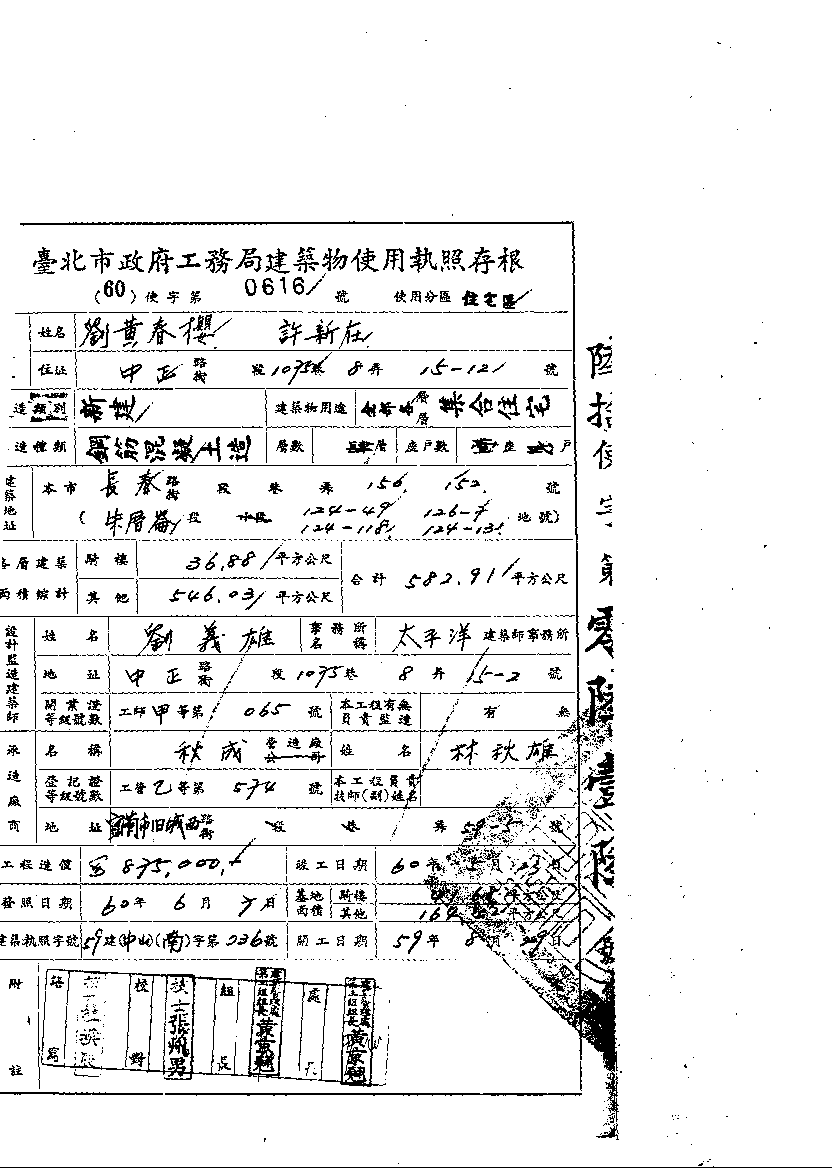 臺北市政府工務局建築物使用執照存根
(60)使字第 0616 號 使用分區 住宅區
姓名 劉黃春櫻 許新在
住址 中正 路街 段 1075巷 8弄 15-121 號
造類別 新建 建築物用途 層 集合住宅
造種類 鋼筋混凝土造 層數 層 座戶數 座 戶
建築地址 本市 長春 路街 段 巷 弄 156. 152. 號
(朱厝崙 段 小段 124-49 126-7 124-118 124-131 地號)
各層建築面積總計 騎樓 36.88 平方公尺 合計 582.91 平方公尺
其他 546.03 平方公尺
設計監造建築師 姓名 劉義雄 事務所名稱 太平洋 建築師事務所
地址 中正 路街 段 1075巷 8弄 15-2 號
開業證等級號數 工師甲等第 065 號 本工程有無負責監造 有 無
承造廠商 名稱 秋成 營造廠公司 姓名 林秋雄
登記證等級號數 工管乙等第 574 號 本工程負責技師(副)姓名
地址 路街 段 巷 弄 59-5 號
工程造價 875,000 竣工日期 60年 5月 日
發照日期 60年 6月 7日 基地面積 騎樓 平方公尺
其他 平方公尺
建築執照字號 59建(中山)(南)字第036號 開工日期 59年 8月 29日
附註 繕寫 校對 組長 處長
陸拾使字第零陸壹陸